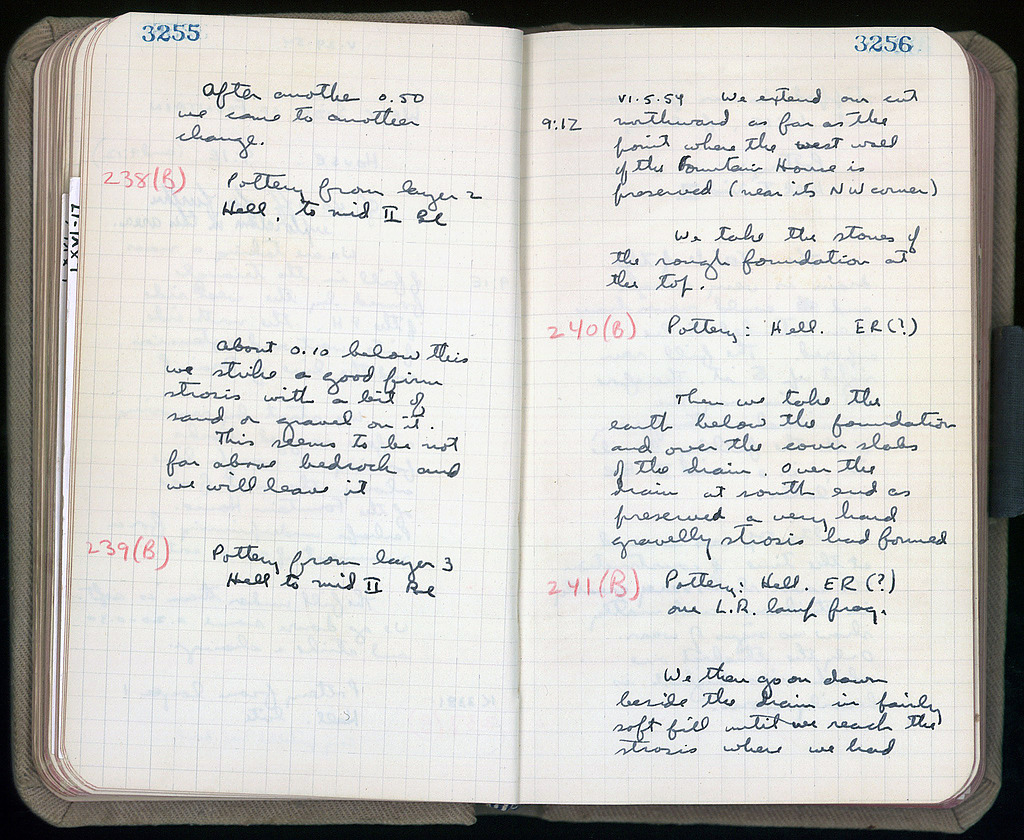 3255
After anothe 0.50
we came to another
change.
238(B) Pottery from layer 2
Hell. to mid II BC
About 0.10 below this
we strike a good firm
strosis with a bit of
sand or gravel on it.
This seems to be not
far above bedrock and
we will leave it
239(B) Pottery from layer 3
Hell to mid II BC
LXVI-17
3256
VI.5.59 We extend our cut
9:12 northward as far as the
point where the west wall
of the Fountain House is
preserved (near its NW corner)
We take the stones of
the rough foundation at
the top.
240(B) Pottery: Hell. ER(?)
Then we take the
earth below the foundation
and over the cover slabs
of the drain. Over the
drain at south end as
preserved a very hard
gravelly strosis had formed
241(B) Pottery: Hell. ER(?)
one L.R. lamp frag.
We then go on down
beside the drain in fairly
soft fill until we reach the
strosis where we had